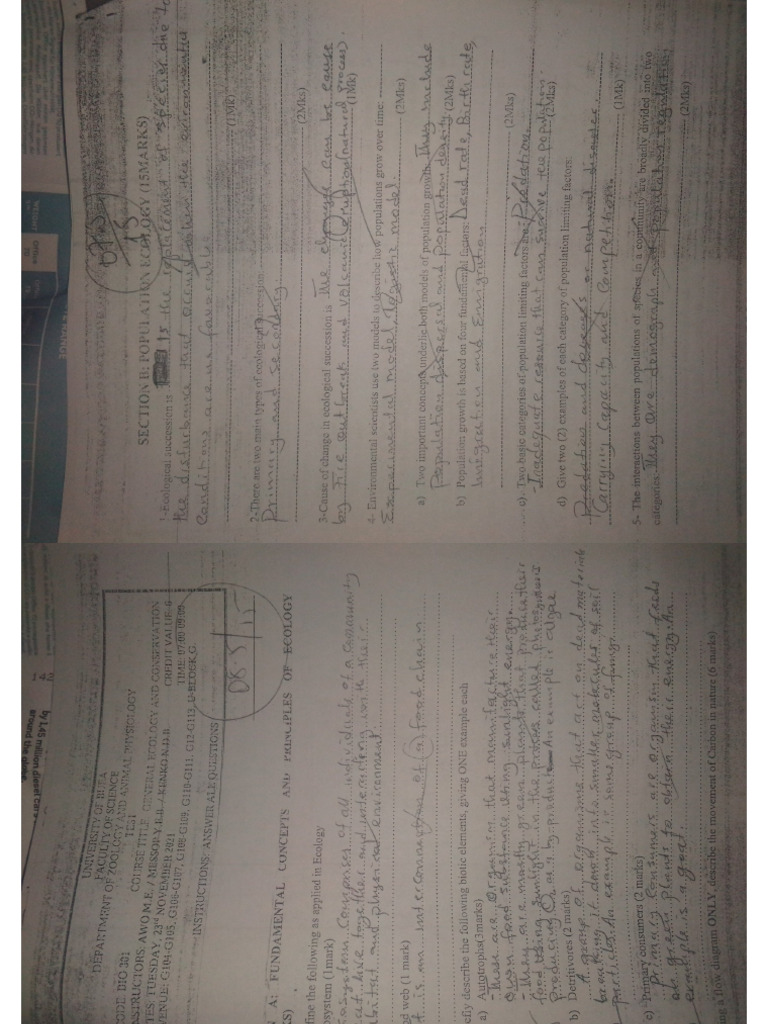 UNIVERSITY OF BUEA
FACULTY OF SCIENCE
DEPARTMENT OF ZOOLOGY AND ANIMAL PHYSIOLOGY
TEST
CODE DIG 301 COURSE TITLE: GENERAL ECOLOGY AND CONSERVATION
INSTRUCTORS: AWO M.E. / MESSOP Y.R.I. / KENKO N.D.B CREDIT VALUE: 6
TES: TUESDAY, 23rd NOVEMBER 2021 TIME: 07:00-09:00
VENUE: G104-G105, G106-G107, G108-G109, G110-G111, G12-G113, U-BLOCK G
INSTRUCTIONS: ANSWER ALL QUESTIONS
08.5/15
N A: FUNDAMENTAL CONCEPTS AND PRINCIPLES OF ECOLOGY
KS)
fine the following as applied in Ecology
osystem (1mark)
cosystem Comprises of all individuals of a community
that live together and interacting with their
abitat and physical environment
od web (1 mark)
it is an interconnection of (a) food chain
efly describe the following biotic elements, giving ONE example each
a) Autotrophs(3marks)
- these are organism that manufacture their
own food substance using sunlight energy.
- they are mostly green plants that produce their
food using sunlight in the process called photosynthesis
producing as a by product. An example is algae
b) Detritivores (2 marks)
A group of organisms that act on dead materials
breaking it down into smaller molecules of soil
particles. An example is some group of fungi.
c) Primary consumers (2 marks)
primary Consumers are organism that feeds
on green plants to obtain their energy. An
example is a goat.
ng a flow diagram ONLY, describe the movement of Carbon in nature (6 marks)
SECTION B: POPULATION ECOLOGY (15MARKS)
15
1-Ecological succession is Is the replacement of species due to
the disturbance that occured when the environmental
conditions are us favourable
(1Mk)
2-There are two main types of ecological succession
Primary and secondary
(2Mks)
3-Cause of change in ecological succession is The change can be cause
by Fire outbreak and volcanic eruption (natural process).
(1Mk)
4- Environmental scientists use two models to describe how populations grow over time:
Experimental model, logistic model.
(2Mks)
a) Two important concepts underlie both models of population growth: They include
Population dispersal and population density (2Mks)
b) Population growth is based on four fundamental factors: Dead rate, Birth rate,
immigration and Emigration
(2Mks)
c) Two basic categories of population limiting factors are: Predation,
- Inadequate resource that can survive the population.
(2Mks)
d) Give two (2) examples of each category of population limiting factors:
Predation and deseases or natural disaster.
Carrying capacity and Competition.
(1Mk)
5- The interactions between populations of species in a community are broadly divided into two
categories: They are demograph and population regulation
(2Mks)